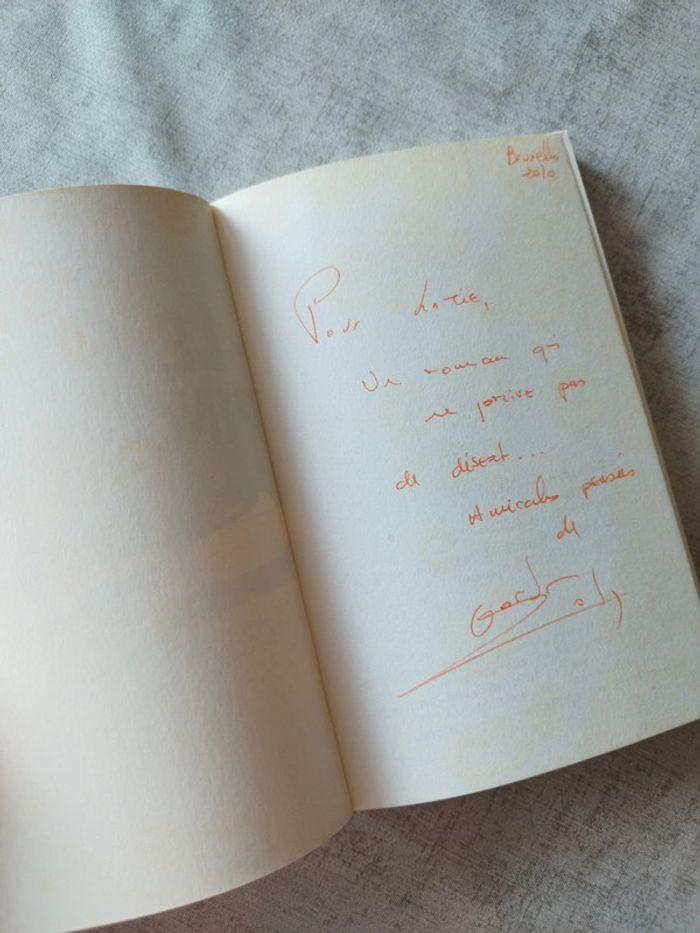 Bruxelles
2010
Pour
Un roman qui
ne prive pas
de désert...
Amicales pensées
de